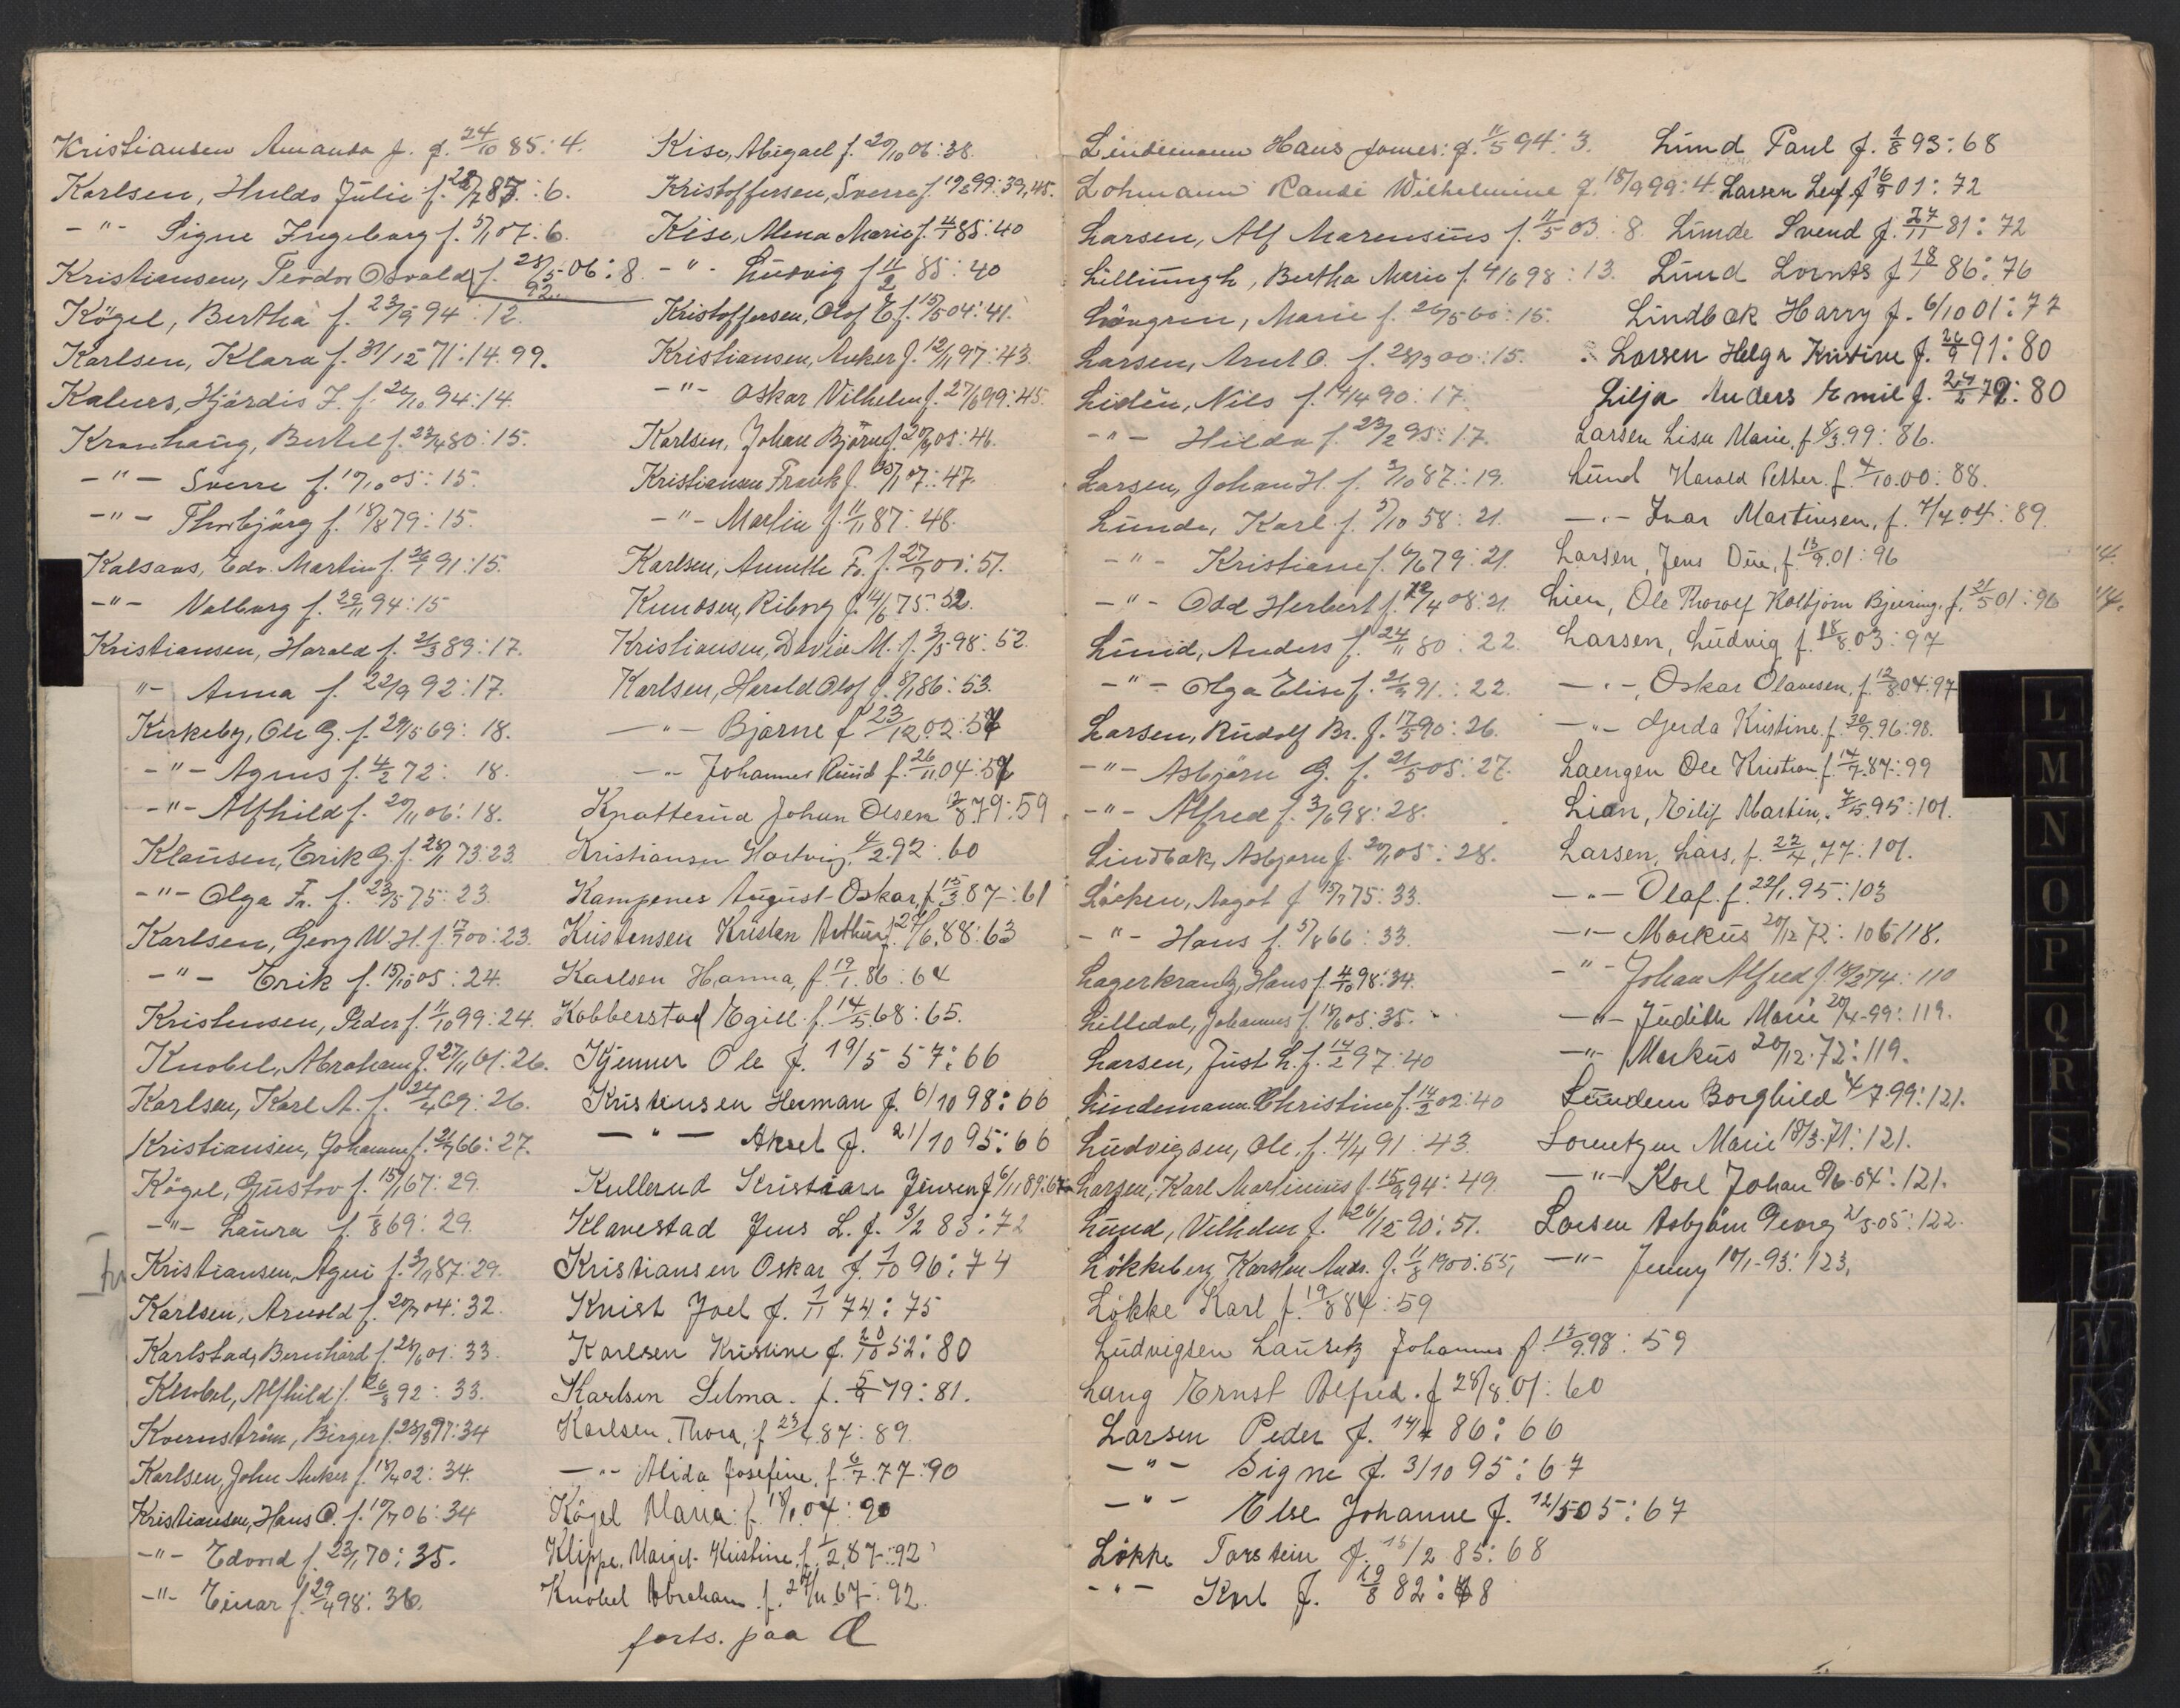 Kristiansen Amanda J. f. 24/10 85: 4.
Karlsen, Hulda Julie f. 28/7 87: 6.
-"- Signe Ingeborg f. 5/1 07: 6.
Kristiansen, Teodor Osvald f. 28/5 06: 8.
92.
Kögel, Bertha f. 23/9 94: 12.
Karlsen, Klara f. 31/12 71: 14. 99.
Kalnes, Hjördis J. f. 26/10 94: 14.
Kronhaug, Bertel f. 23/4 80: 15.
-"- Sverre f. 17/10 05: 15.
-"- Thorbjörg f. 18/8 79: 15.
Kalsaas, Edv. Martin f. 26/1 91: 15.
-"- Valborg f. 29/11 94: 15
Kristiansen, Harald f. 21/3 89: 17.
"- Anna f. 22/9 92: 17.
Kirkeby, Ole G. f. 29/5 69: 18.
-"- Agnes f. 4/2 72: 18.
-"- Alfhild f. 20/11 06: 18.
Klausen, Erik G. f. 28/11 73: 23.
-"- Olga Fr. f. 23/5 75: 23.
Karlsen, Georg W. H. f. 17/7 00: 23.
-"- Erik f. 15/10 05: 24.
Kristensen, Peder f. 11/10 99: 24.
Knobel, Abraham f. 27/11 67: 26.
Karlsen, Karl A. f. 24/4 69: 26.
Kristiansen, Johanne f. 26/7 66: 27.
Kögel, Gustav f. 15/1 67: 29.
-"- Laura f. 1/8 69: 29.
Kristiansen, Agni f. 3/1 87: 29.
Karlsen, Arnold f. 20/7 04: 32.
Karlstad, Bernhard f. 28/6 01: 33.
Knobel, Alfhild f. 26/8 92: 33.
Kvernström, Birger f. 28/3 97: 34
Karlsen, John Anker f. 18/4 02: 34.
Kristiansen, Hans O. f. 19/7 06: 34
-"- Edvard f. 23/1 70: 35.
-"- Einar f. 29/4 98: 36.
Kise, Abigael f. 20/10 06: 38.
Kristoffersen, Sverre f. 19/8 99: 39, 45.
Kise, Alma Marie f. 4/7 85: 40
-"- Ludvig f. 11/2 85: 40
Kristoffersen, Olof E f. 15/5 04: 41.
Kristiansen, Anker f. 12/11 97: 43.
-"- Oskar Vilhelm f. 27/6 99: 45.
Karlsen, Johan Björne f. 20/9 05: 46.
Kristiansen Frank f. 30/1 07: 47.
-"- Martin f. 11/11 87: 48.
Karlsen, Annette Fr. f. 27/7 00: 51.
Knudsen, Riborg f. 14/6 75: 52.
Kristiansen, David M. f. 3/5 98: 52.
Karlsen, Harald Olof f. 8/1 86: 53.
-"- Bjarne f. 23/12 02: 54
-"- Johannes Ruud f. 26/11 04: 54
Knatterud Johan Olsen 12/8 79: 59
Kristiansen Hartvig, 4/2 92: 60
Kampenes August Oskar, f. 15/3 87: 61
Kristensen Kristen Arthur f. 27/6 88: 63
Karlsen Hanna, f. 19/1 86: 64
Kobberstad Egill. f. 14/5 68: 65.
Kjenner Ole f. 19/5 57: 66
Kristensen Herman f. 6/10 98: 66
-"- Aksel f. 21/10 95: 66
Kullerud Kristian Jensen f. 6/11 89: 67
Klavestad Jens L. f. 3/2 83: 72
Kristiansen Oskar f. 1/10 96: 74
Knist Joel f. 1/11 74: 75
Karlsen Kristine f. 20/10 52: 80
Karlsen Selma. f. 5/9 79: 81.
Karlsen, Thora, f. 23/4 87: 89.
-"- Alida Josefine, f. 6/7 77: 90
Kögel Maria: f. 18/1 04: 90
Klippe, Margit Kristine, f. 1/2 87: 92
Knobel Abraham f. 27/11 67: 92.
forts. paa A
Lindemann Hans James: f. 11/5 94: 3.
Lohmann Randi Wilhelmine f. 18/9 99: 4.
Larsen, Alf Marensius f. 11/5 03: 8.
Lilliungh, Bertha Marie f. 4/6 98: 13.
Lövgren, Marie f. 26/5 60: 15.
Larsen, Arnt O. f. 28/3 00: 15.
Lidén, Nils f. 14/4 90: 17.
-"- Hilda f. 23/2 95: 17.
Larsen, Johan H. f. 3/10 87: 19.
Lunde, Karl f. 5/10 58: 21.
-"- Kristiane f. 6/6 79: 21.
-"- Odd Herbert f. 12/4 08: 21.
Lunid, Anders f. 24/11 80: 22.
-"- Olga Elise f. 21/9 91: 22.
Larsen, Rudolf Br. f. 17/5 90: 26.
-"- Asbjörn G. f. 21/5 05: 27.
-"- Alfred f. 3/6 98: 28.
Lindbak, Asbjørn f. 20/11 05: 28.
Löcken, Aagot f. 15/7 75: 33.
-"- Hans f. 5/8 66: 33.
Lagerkrantz, Hans f. 4/10 98: 34.
Lilledal, Johannes f. 18/6 05: 35.
Larsen, Just L. f. 14/2 97: 40
Lindemann Christine f. 14/2 02: 40
Ludvigsen, Ole f. 4/4 91: 43.
Larsen, Karl Martinius f. 15/9 94: 49.
Lund, Vilhelm f. 26/12 90: 51.
Løkkeberg Karsten Andr. f. 11/8 1900: 55,
Løkke Karl f. 19/8 84: 59
Ludvigsen Lauritz Johannes f. 13/9 98: 59
Lang Ernst Alfred. f. 28/8 01: 60
Larsen Peder f. 14/4 86: 66
-"- Signe f. 3/10 95: 67
-"- Else Johanne f. 12/5 05: 67
Løkke Torstein f. 15/2 85: 68
-"- Karl f. 19/8 82: 68
Lund Paul f. 1/8 93: 68
Larsen Leif f. 16/9 01: 72
Linde Svend f. 27/11 81: 72
Lund Lornts f. 18/1 86: 76
Lindbak Harry f. 6/10 01: 77
Larsen Helga Kristine f. 26/9 91: 80
Lilja Anders Emil f. 24/2 72: 80
Larsen Lisa Marie, f. 8/3 99: 86.
Lund Harald Petter. f. 4/10 00: 88.
-"- Ivar Martinsen, f. 7/4 04: 89.
Larsen, Jens Due, f. 13/9 01: 96
Lien, Ole Thorolf Kolbjørn Bjering, f. 21/5 01: 96
Larsen, Ludvig f. 18/8 03: 97
-"-, Oskar Olavesen, f. 12/8 04: 97
-"- Gerda Kristine f. 30/9 96: 98.
Laengen Ole Kristian f. 14/7 87: 99
Lian, Eilif Martin, 7/5 95: 101.
Larsen, Lars, f. 22/4 77: 101.
-"- Olaf. f. 22/1 95: 103
-"- Markus 20/12 72: 106 118.
-"- Johan Alfred f. 18/2 74: 110
-"- Judith Marie 20/4 99: 119.
-"- Markus 20/12 72: 119.
Lunden Borghild 4/7 99: 121.
Lorentzen Marie 18/3 71: 121.
-"- Karl Johan 8/6 64: 121.
Larsen Asbjörn Georg 21/5 05: 122.
-"- Jenny 10/1 93: 123,
L
M
N
O
P
Q
R
S